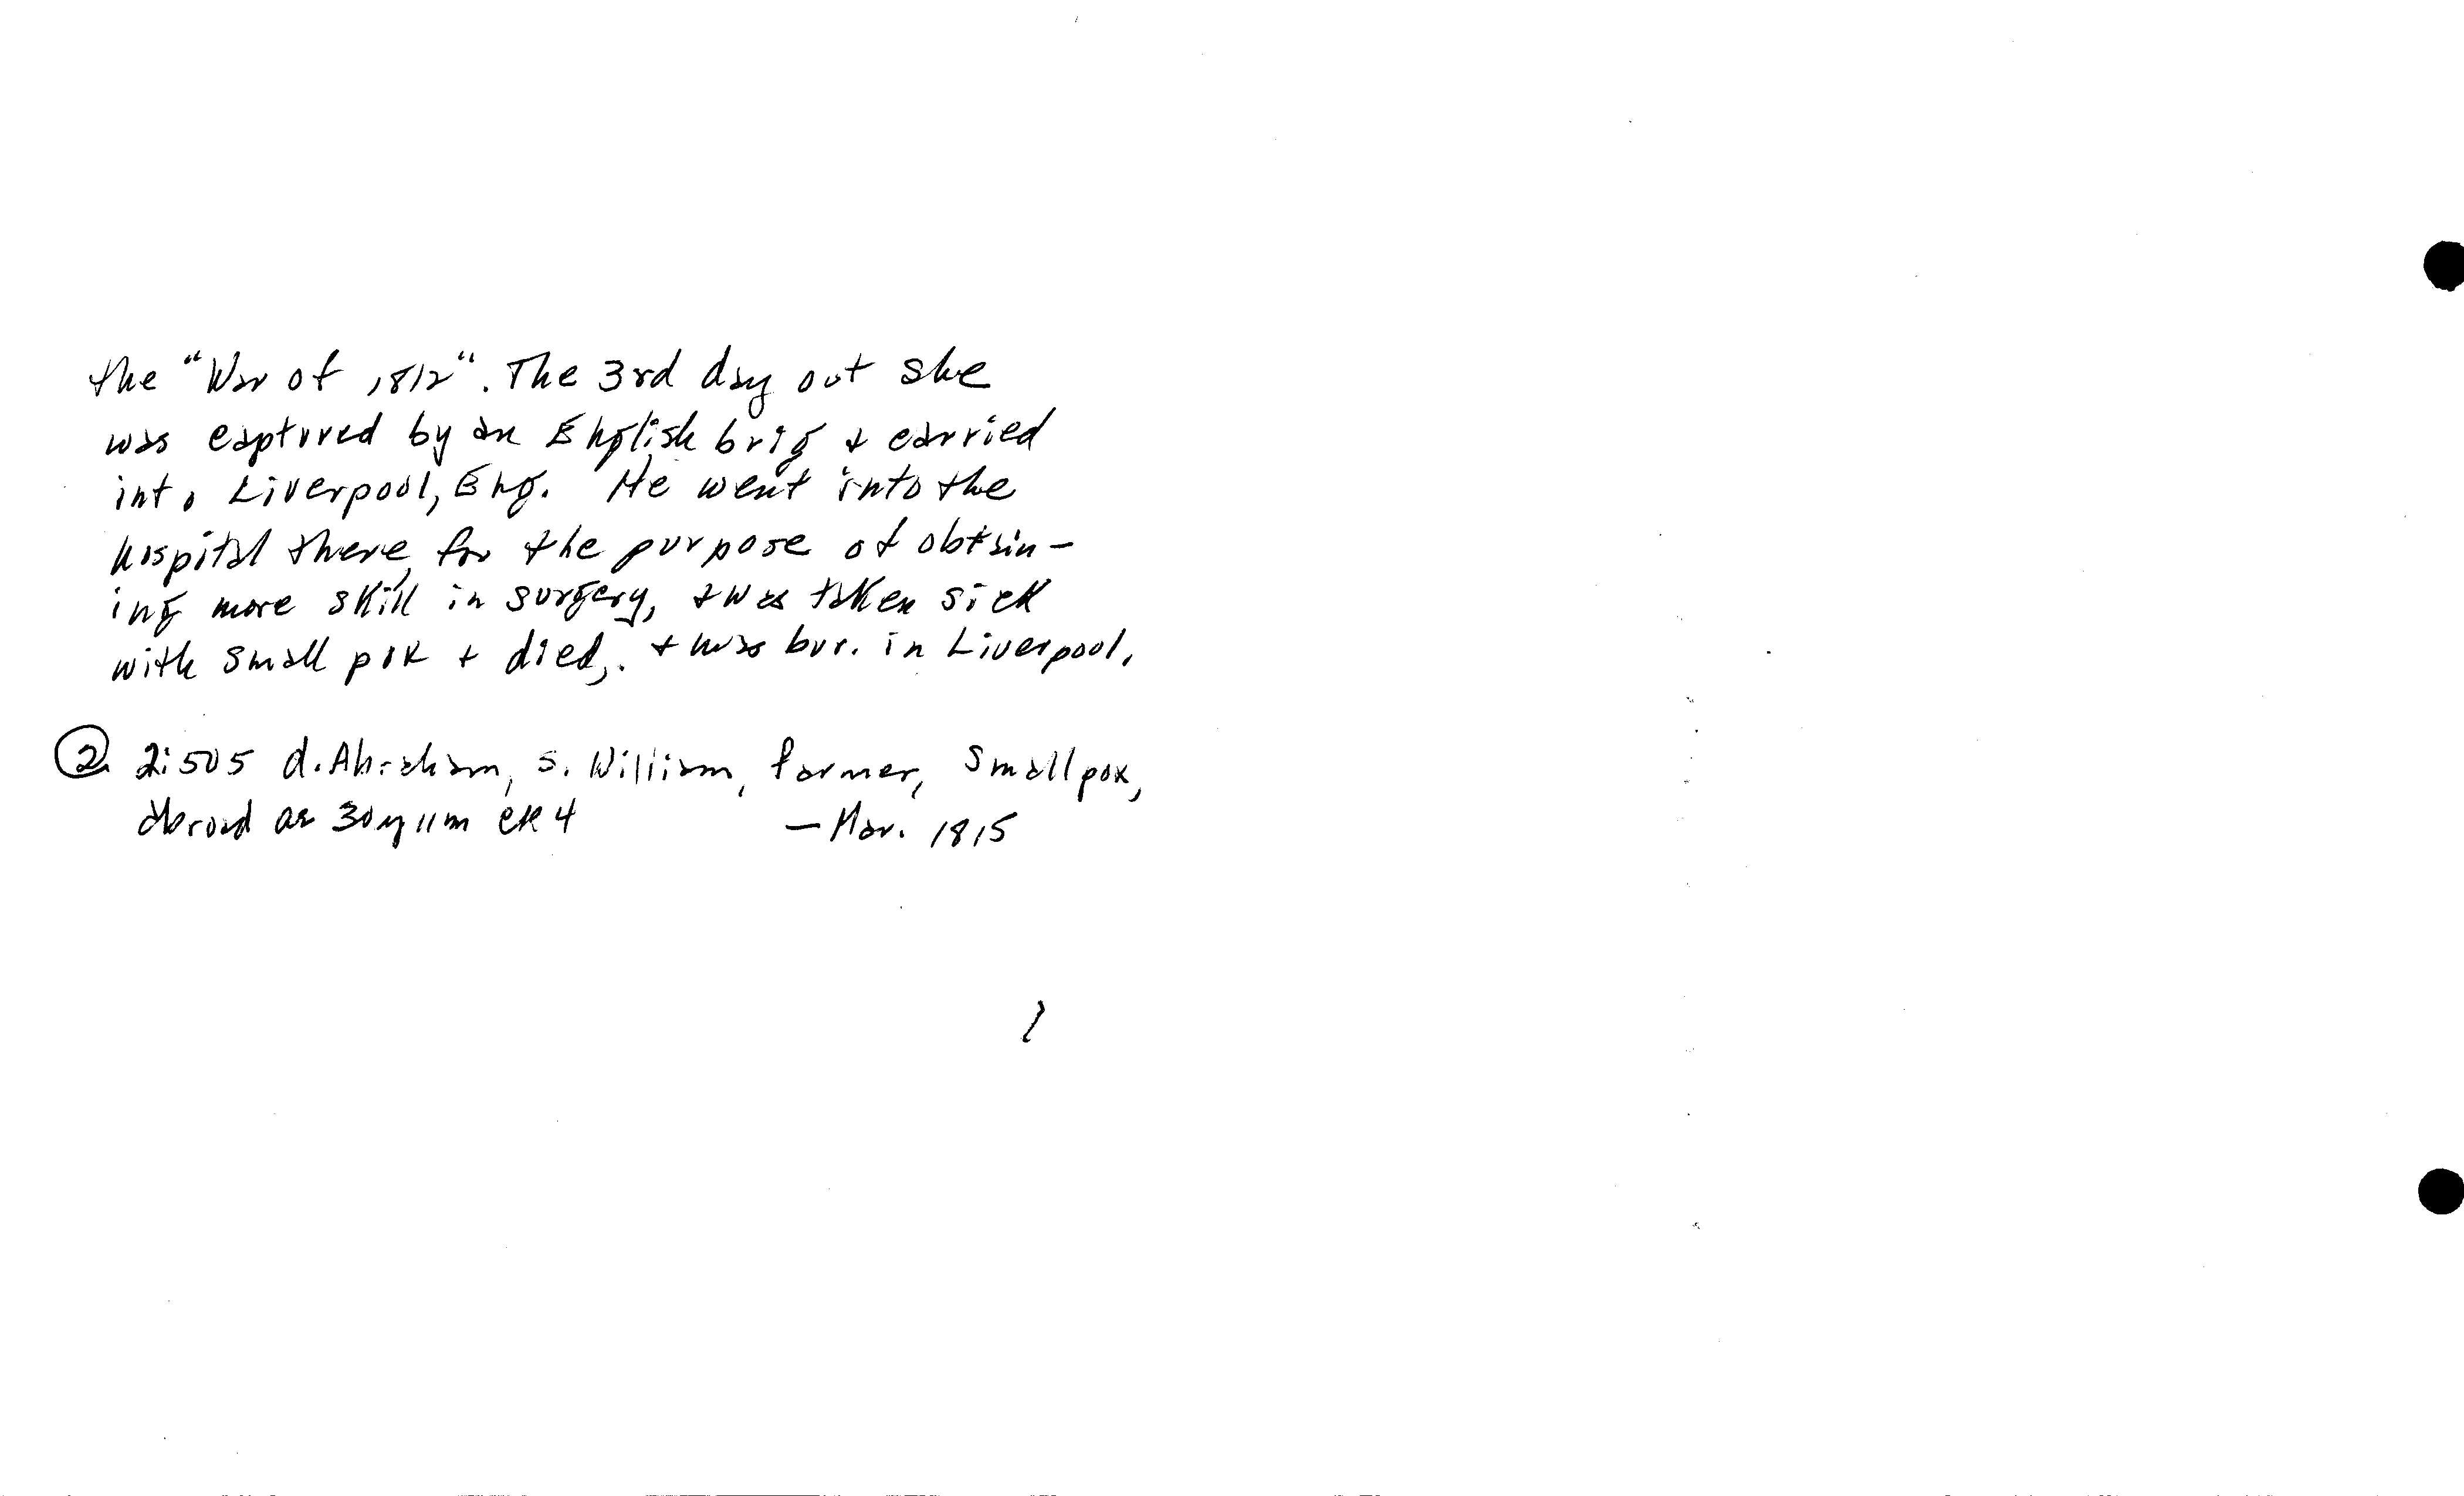 the "War of 1812". The 3rd day out she
was captured by an English brig + carried
into Liverpool, Eng. He went into the
hospital there for the purpose of obtain-
ing more skill in surgery, + was taken sick
with small pox + died, + was bur. in Liverpool.
② 2:505 d. Abraham, s. William, farmer, smallpox,
abroad ae 30y 11m CR 4 - Mar. 1815